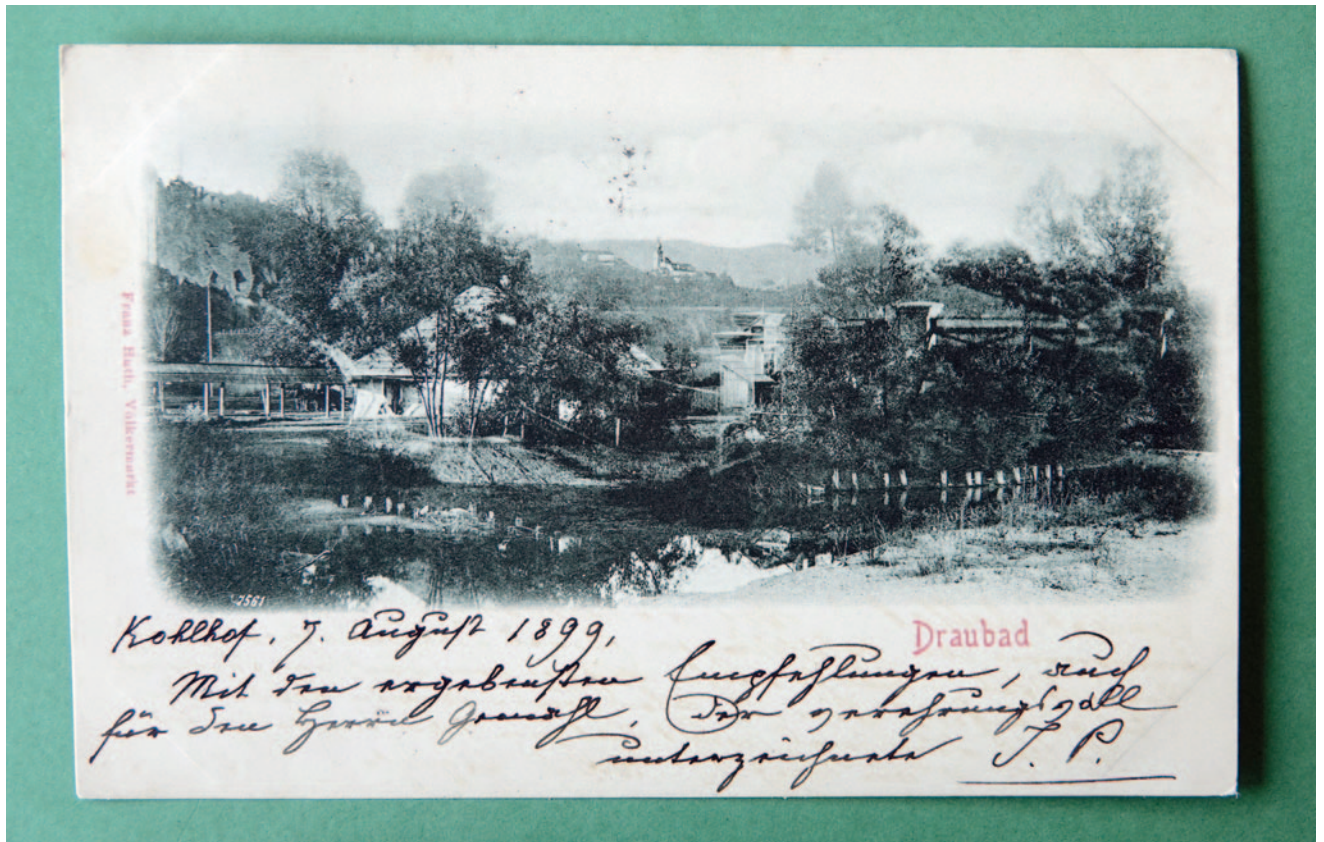 Franz Huth, Völkermarkt
7561
Draubad
Kohlhof, 7. August 1899,
Mit den ergebensten Empfehlungen, auch
für den Herrn Gemahl, Der verehrungsvoll
unterzeichnete J. P.